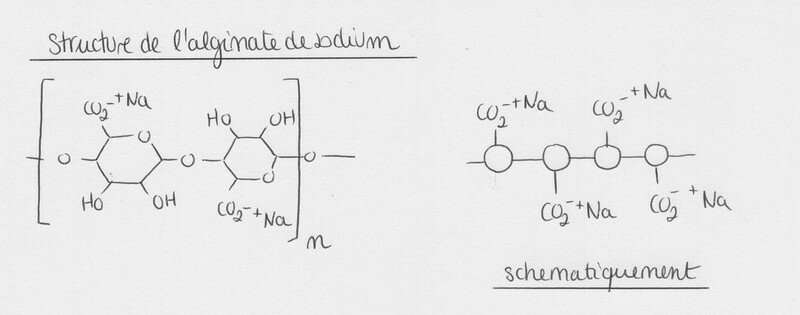 Structure de l'alginate de sodium
CO2-+Na
O
O
O
O
O
Ho
OH
Ho
OH
CO2-+Na
n
CO2-+Na
CO2-+Na
CO2-+Na
CO2-+Na
schematiquement